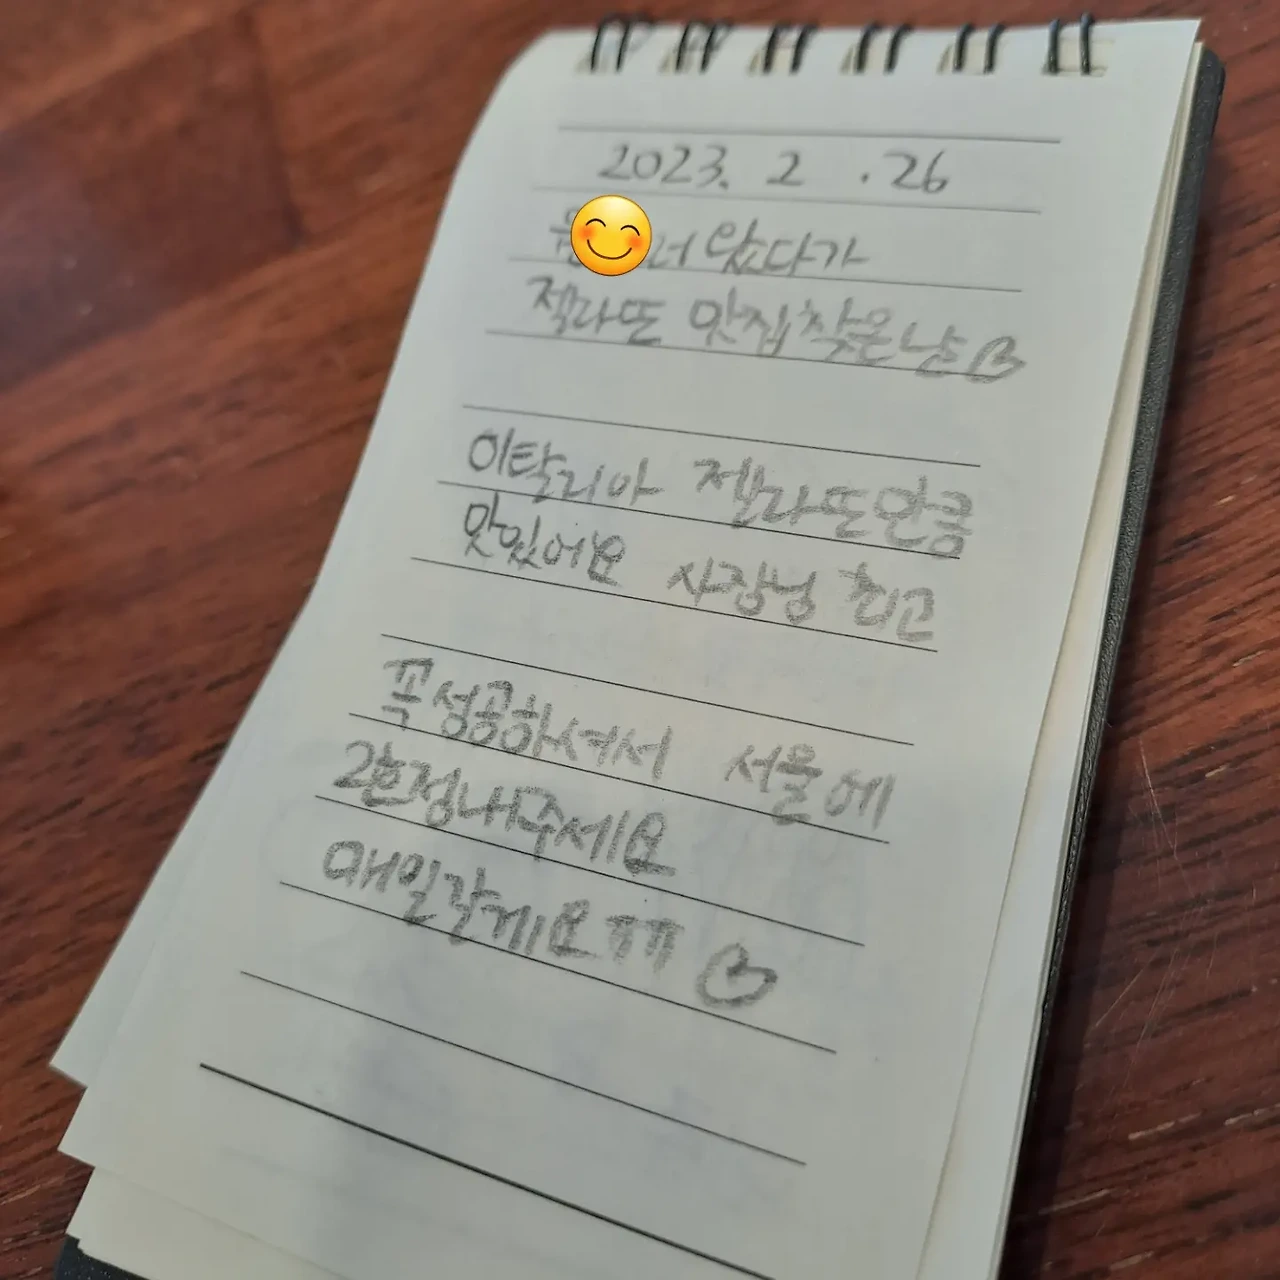 2023. 2 . 26
왔다가
젤라또 맛집 찾은 날
이탈리아 젤라또만큼
맛있어요 사장님 최고
꼭 성공하셔서 서울에
2호점내주세요
매일갈게요ㅠㅠ